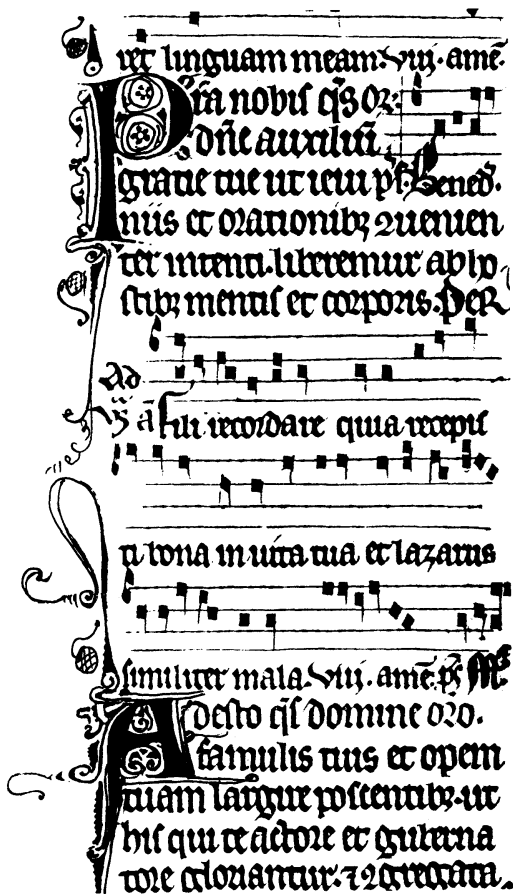 ret linguam meam. viij. amē.
Pr̄a nobis q̄s or.
dn̄e auxiliū
gratie tue ut ieiu p̄s. Bened̄.
niis et orationibꝫ ꝯuenien
ter intenti. liberemur ab ho
stibꝫ mentis et corporis. Per
Ad
Fili recordare quia recepis
ti bona in uita tua et lazarus
similiter mala. viij. amē. p̄s M
Adesto q̄s domine oro.
famulis tuis et opem
tuam largire poscentibꝫ. ut
his qui te actore et guberna
tore gloriantur. ⁊ ꝯgregata